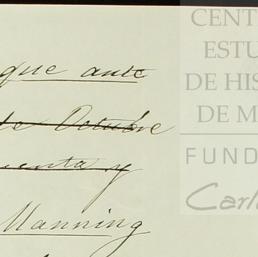 que ante
de Octubre
uenta y
Manning
CENT
ESTU
DE HIS
DE M
FUND
Carl